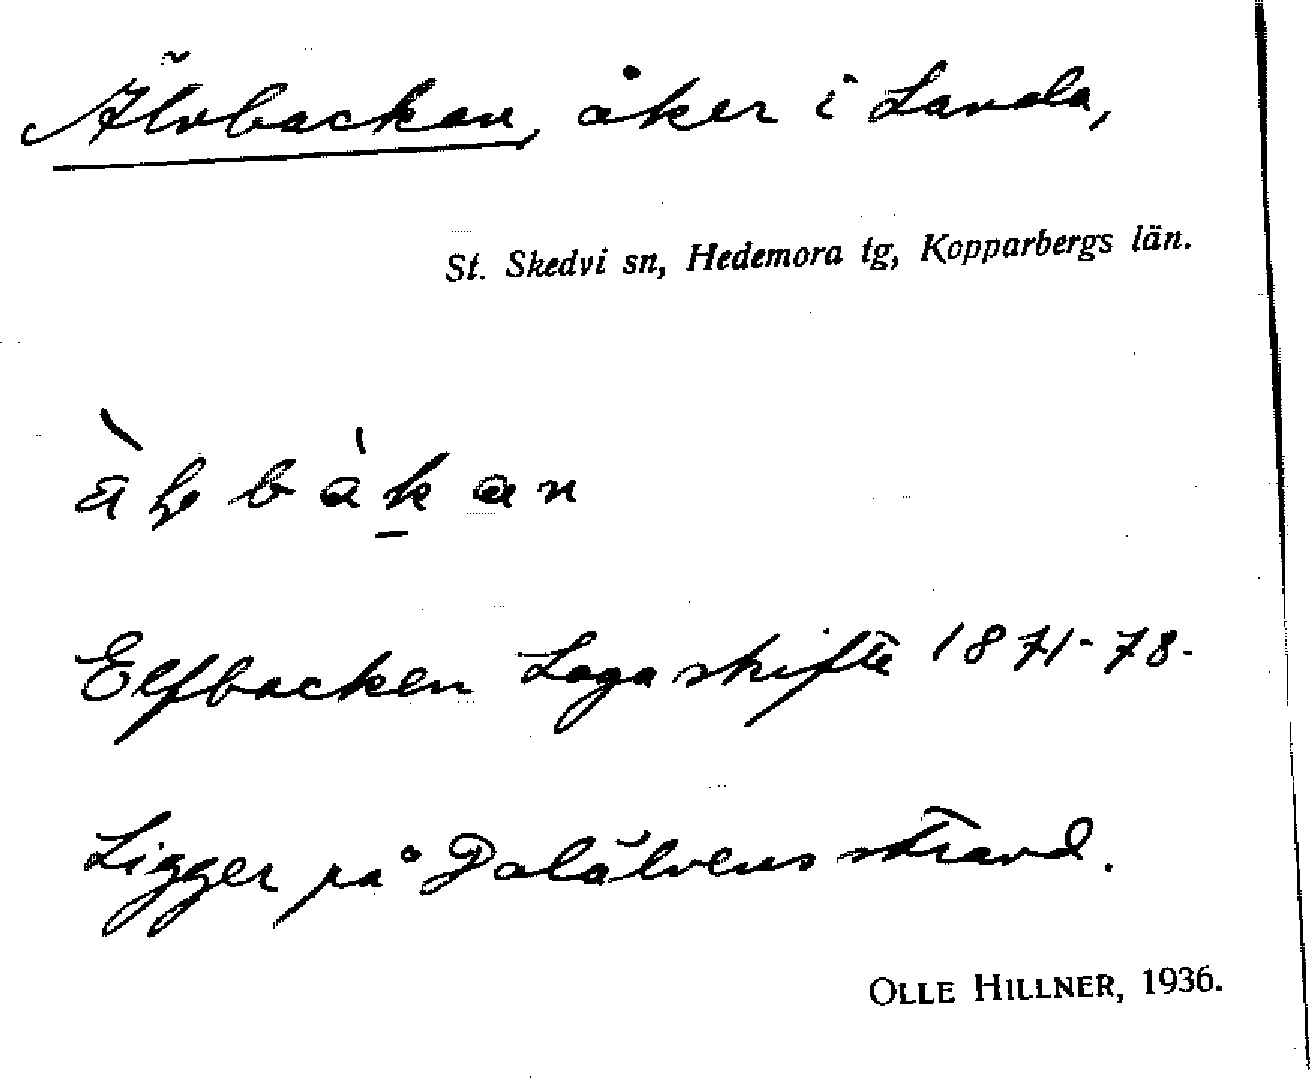 Älvbacken, åker i Landa,
St. Skedvi sn, Hedemora tg, Kopparbergs län.
Elfbacken Laga skifte 1871-78.
Ligger på Dalälvens strand.
OLLE HILLNER, 1936.